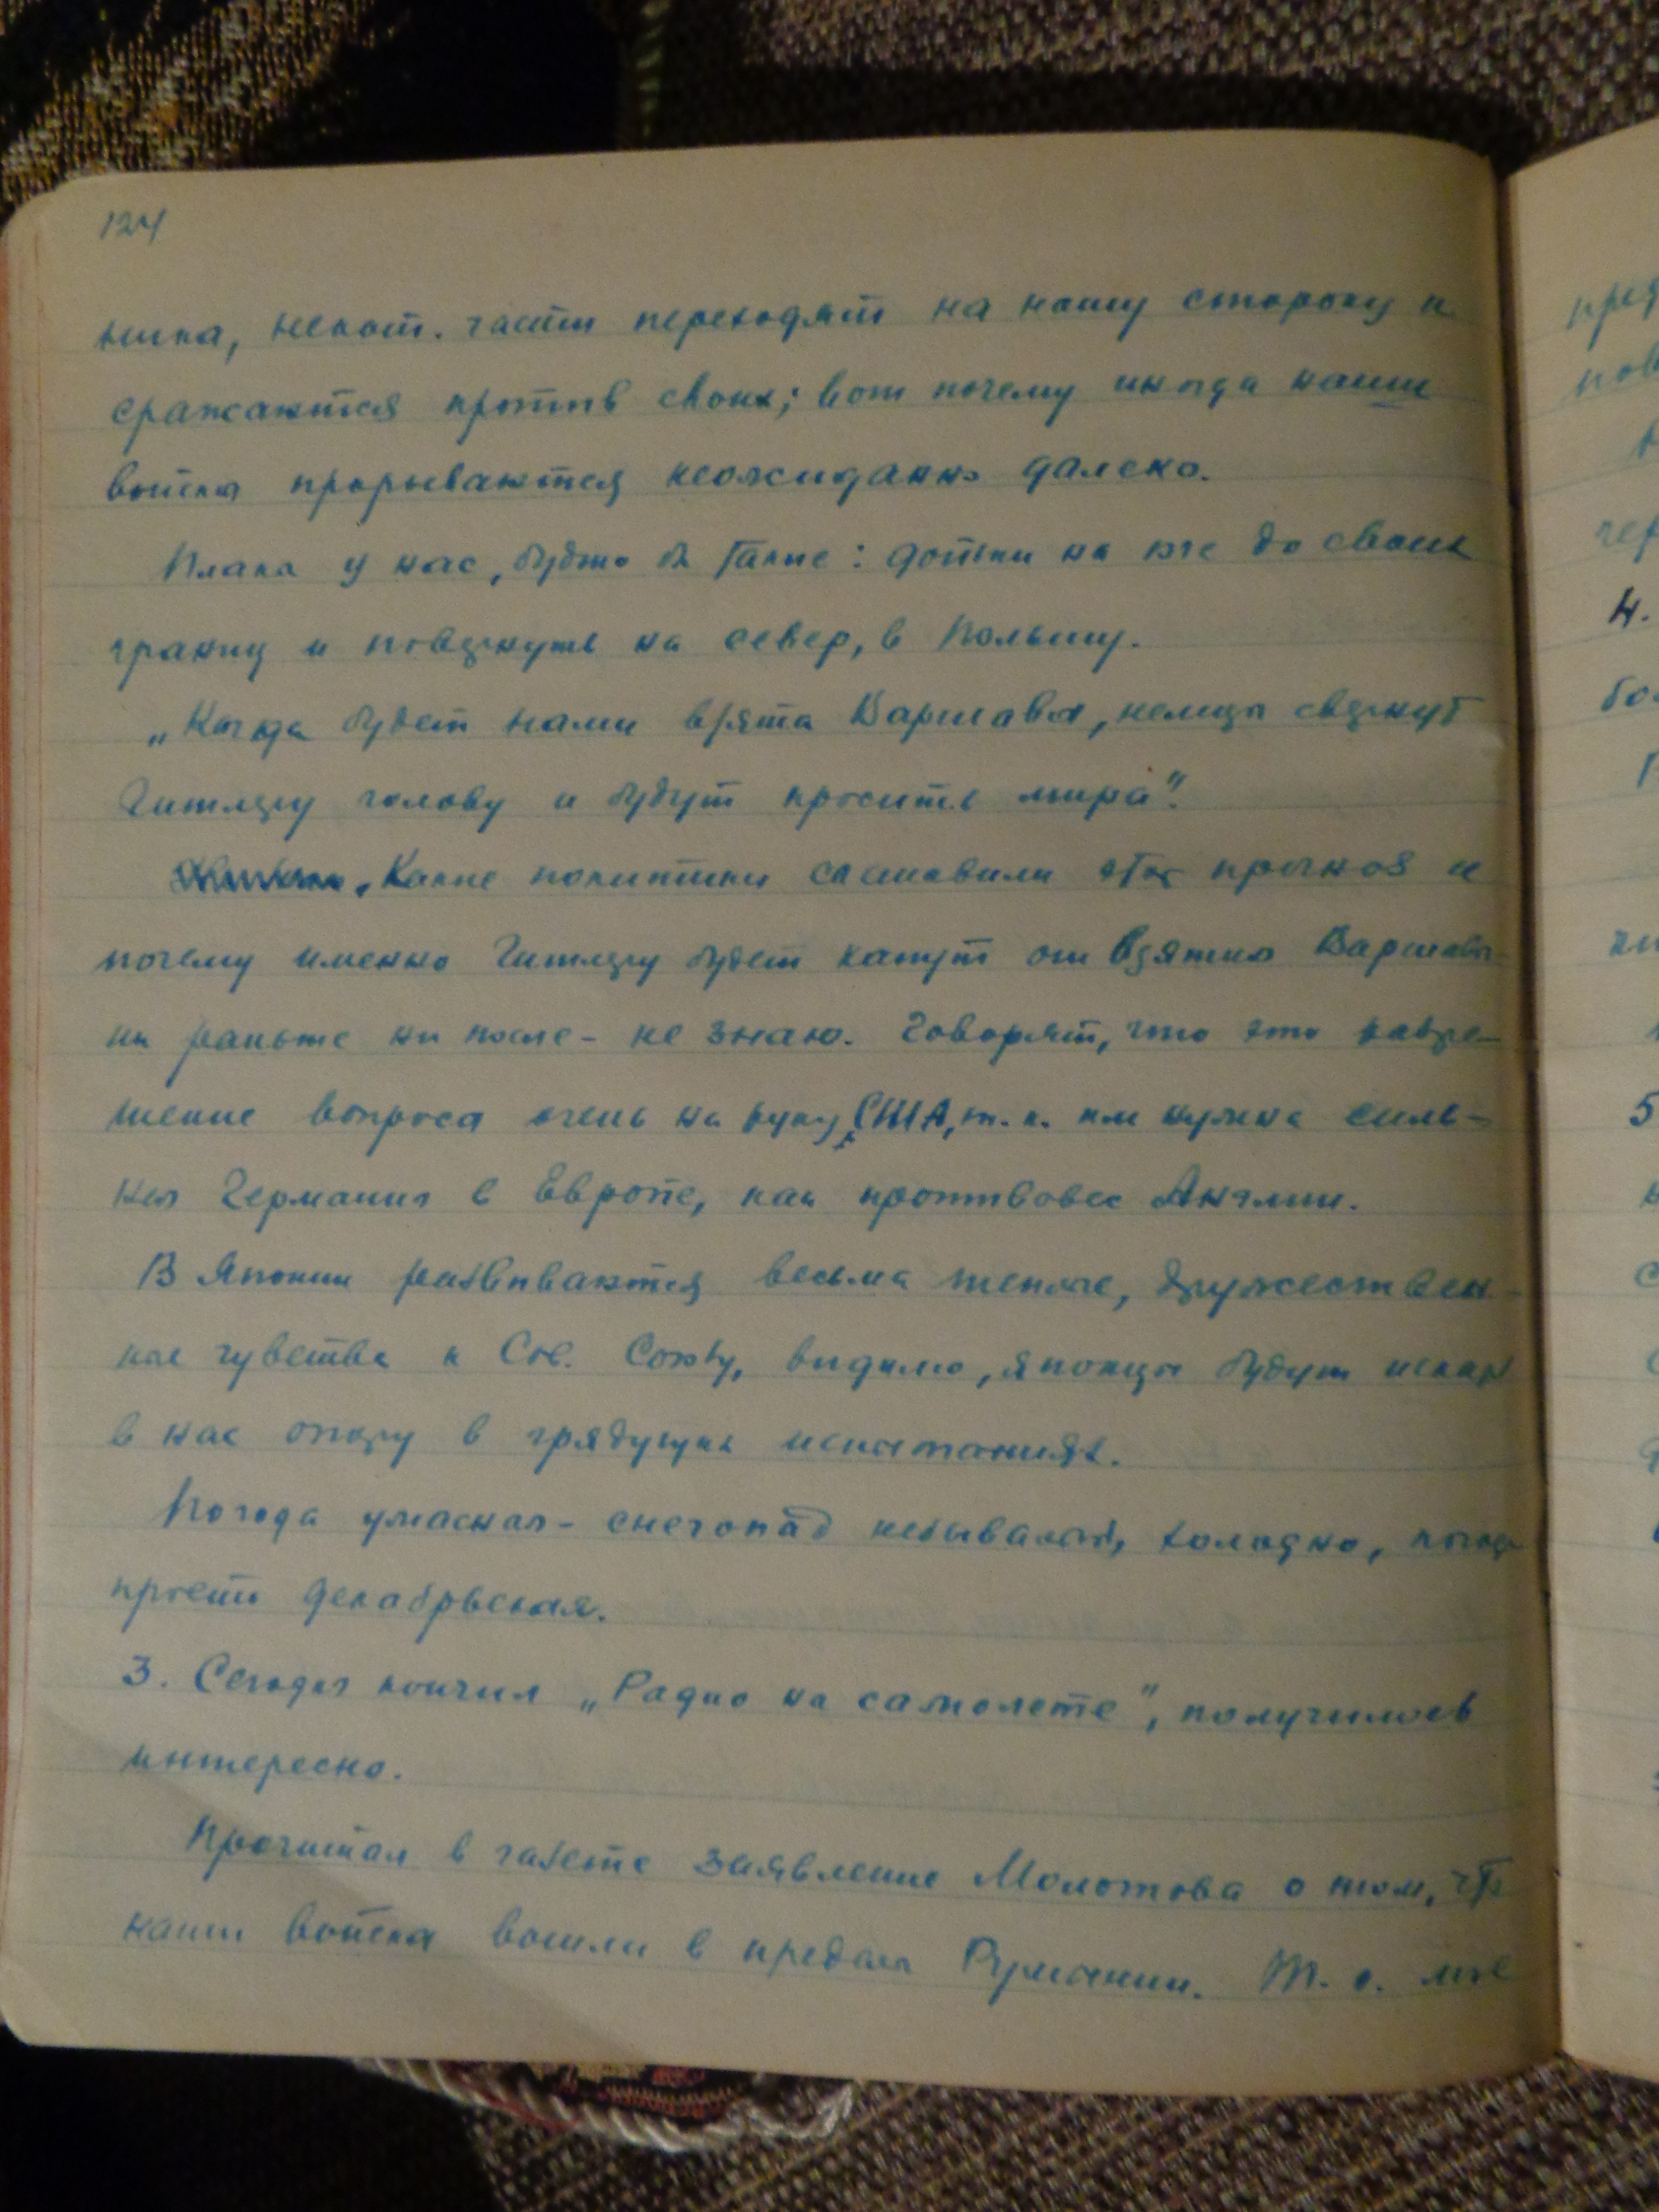 124
ника, некот. части переходят на нашу сторону и
сражаются против своих; вот почему иногда наши
войска прорываются неожиданно далеко.
Планы у нас, будто бы такие: дойти на юге до своих
границ и повернуть на север, в Польшу.
„Когда будет нами взята Варшава, немцы свернут
Гитлеру голову и будут просить мира".
Какие политики сшиловили этот прогноз и
почему именно Гитлеру будет капут от взятия Варшавы
ни раньше ни после - не знаю. Говорят, что это
шение вопроса очень на руку США, т. к. им нужна силь-
ная Германия в Европе, как противовес Англии.
В Японии развиваются весьма теплые, дружествен-
ные чувства к Сов. Союзу, видимо, японцы будут искать
в нас опору в грядущих испытаниях.
Погода ужасная - снегопад небывалый, холодно, погода
просто декабрьская.
3. Сегодня кончил „Радио на самолете", получилось
интересно.
Прочитал в газете заявление Молотова о том, что
наши войска вошли в пределы Румынии. Т. о. мое
пред
пов
чер
4.
бол
5